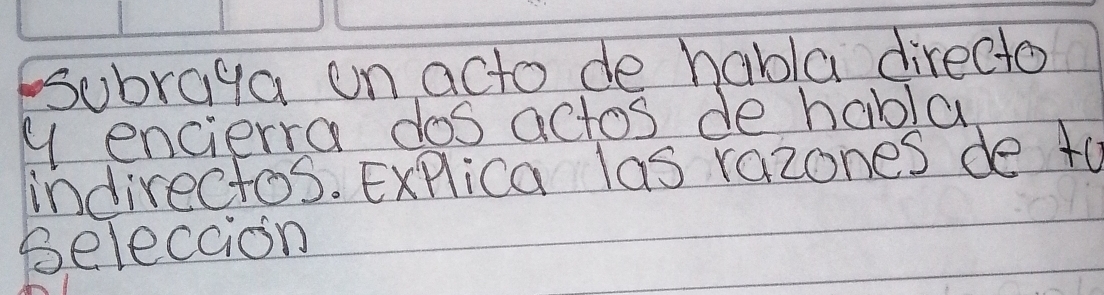 Subraya un acto de habla directo
y encierra dos actos de habla
indirectos. Explica las razones de tu
Selección